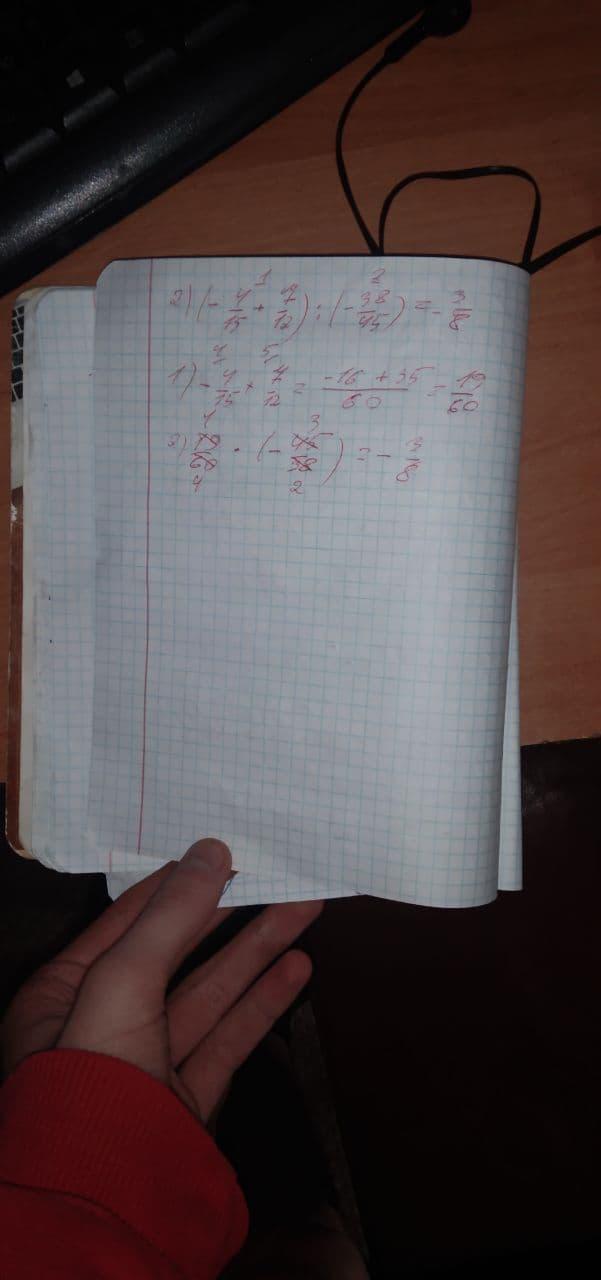 1 2
2) (- 4/15 + 7/12) : (- 38/45) = - 3/8
4 5
1) - 4/15 + 7/12 = -16 + 35/60 = 19/60
1 3
2) 19/60 · (- 45/38) = - 3/8
4 2